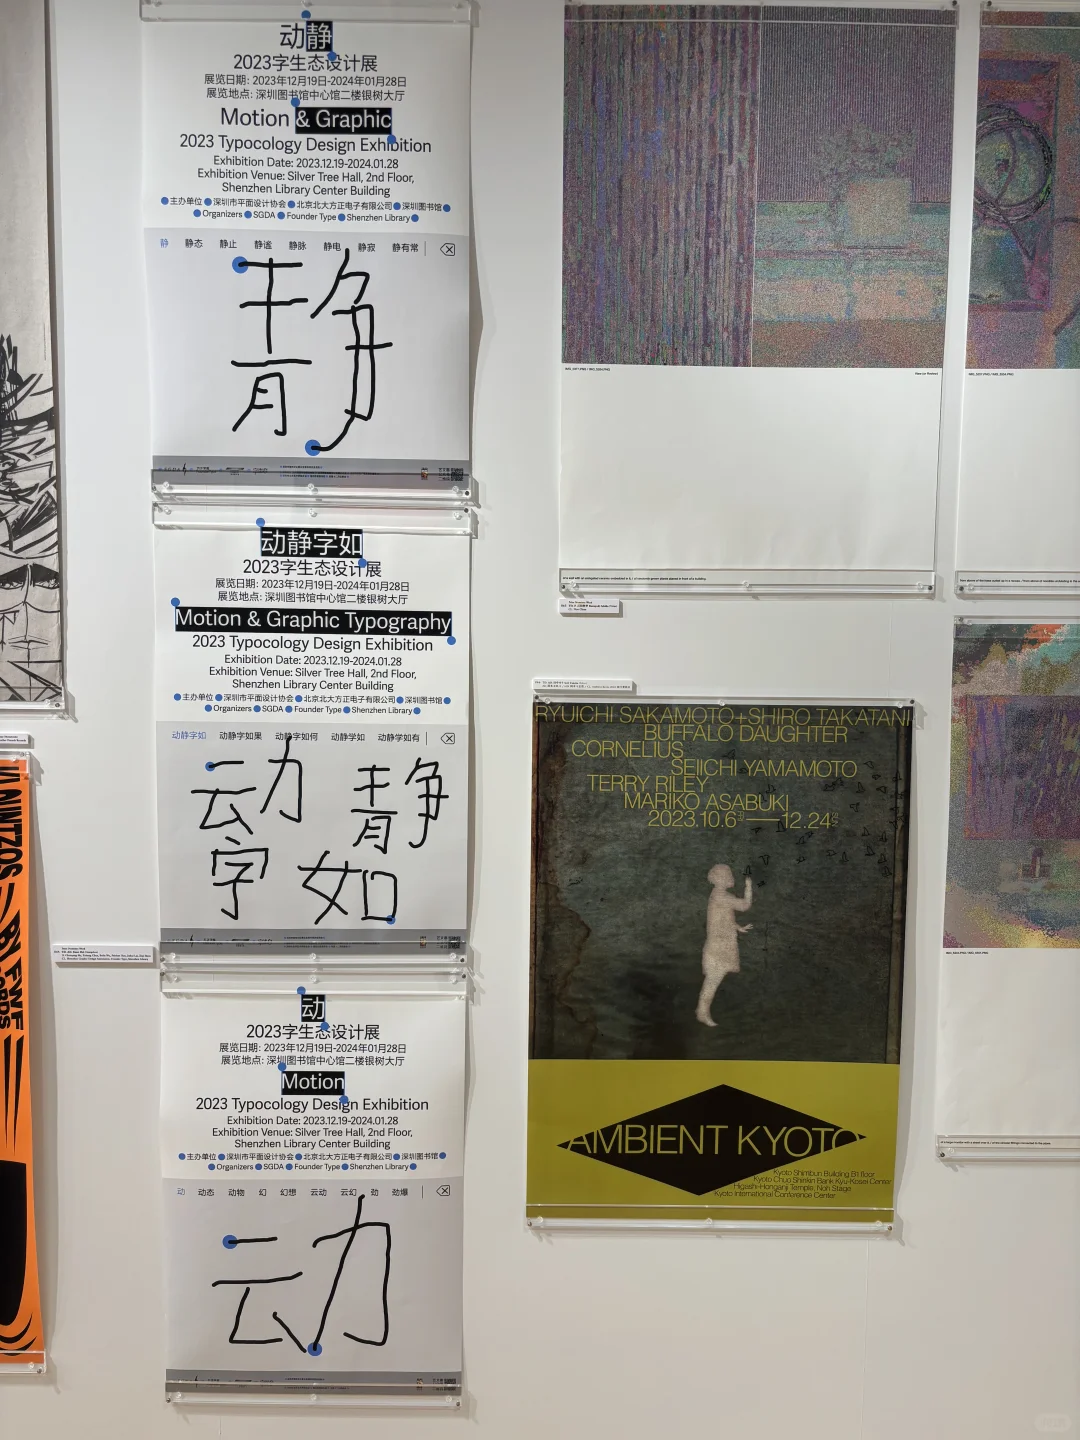 动静
2023字生态设计展
展览日期: 2023年12月19日-2024年01月28日
展览地点: 深圳图书馆中心馆二楼银树大厅
Motion & Graphic
2023 Typocology Design Exhibition
Exhibition Date: 2023.12.19-2024.01.28
Exhibition Venue: Silver Tree Hall, 2nd Floor,
Shenzhen Library Center Building
主办单位 深圳市平面设计协会 北京北大方正电子有限公司 深圳图书馆
Organizers SGDA Founder Type Shenzhen Library
静 静态 静止 静谧 静脉 静电 静寂 静有常
静
动静字如
2023字生态设计展
展览日期: 2023年12月19日-2024年01月28日
展览地点: 深圳图书馆中心馆二楼银树大厅
Motion & Graphic Typography
2023 Typocology Design Exhibition
Exhibition Date: 2023.12.19-2024.01.28
Exhibition Venue: Silver Tree Hall, 2nd Floor,
Shenzhen Library Center Building
主办单位 深圳市平面设计协会 北京北大方正电子有限公司 深圳图书馆
Organizers SGDA Founder Type Shenzhen Library
动静字如 动静字如果 动静字如何 动静学如 动静学如有
动静
字如
动
2023字生态设计展
展览日期: 2023年12月19日-2024年01月28日
展览地点: 深圳图书馆中心馆二楼银树大厅
Motion
2023 Typocology Design Exhibition
Exhibition Date: 2023.12.19-2024.01.28
Exhibition Venue: Silver Tree Hall, 2nd Floor,
Shenzhen Library Center Building
主办单位 深圳市平面设计协会 北京北大方正电子有限公司 深圳图书馆
Organizers SGDA Founder Type Shenzhen Library
动 动态 动物 幻 幻想 云动 云幻 劲 劲爆
动
RYUICHI SAKAMOTO+SHIRO TAKATANI
BUFFALO DAUGHTER
CORNELIUS
SEIICHI YAMAMOTO
TERRY RILEY
MARIKO ASABUKI
2023.10.6 12.24
AMBIENT KYOTO
Kyoto Shimbun Building B1 floor
Kyoto Chuo Shinkin Bank Kyu-Kosei Center
Higashi-Honganji Temple, Noh Stage
Kyoto International Conference Center